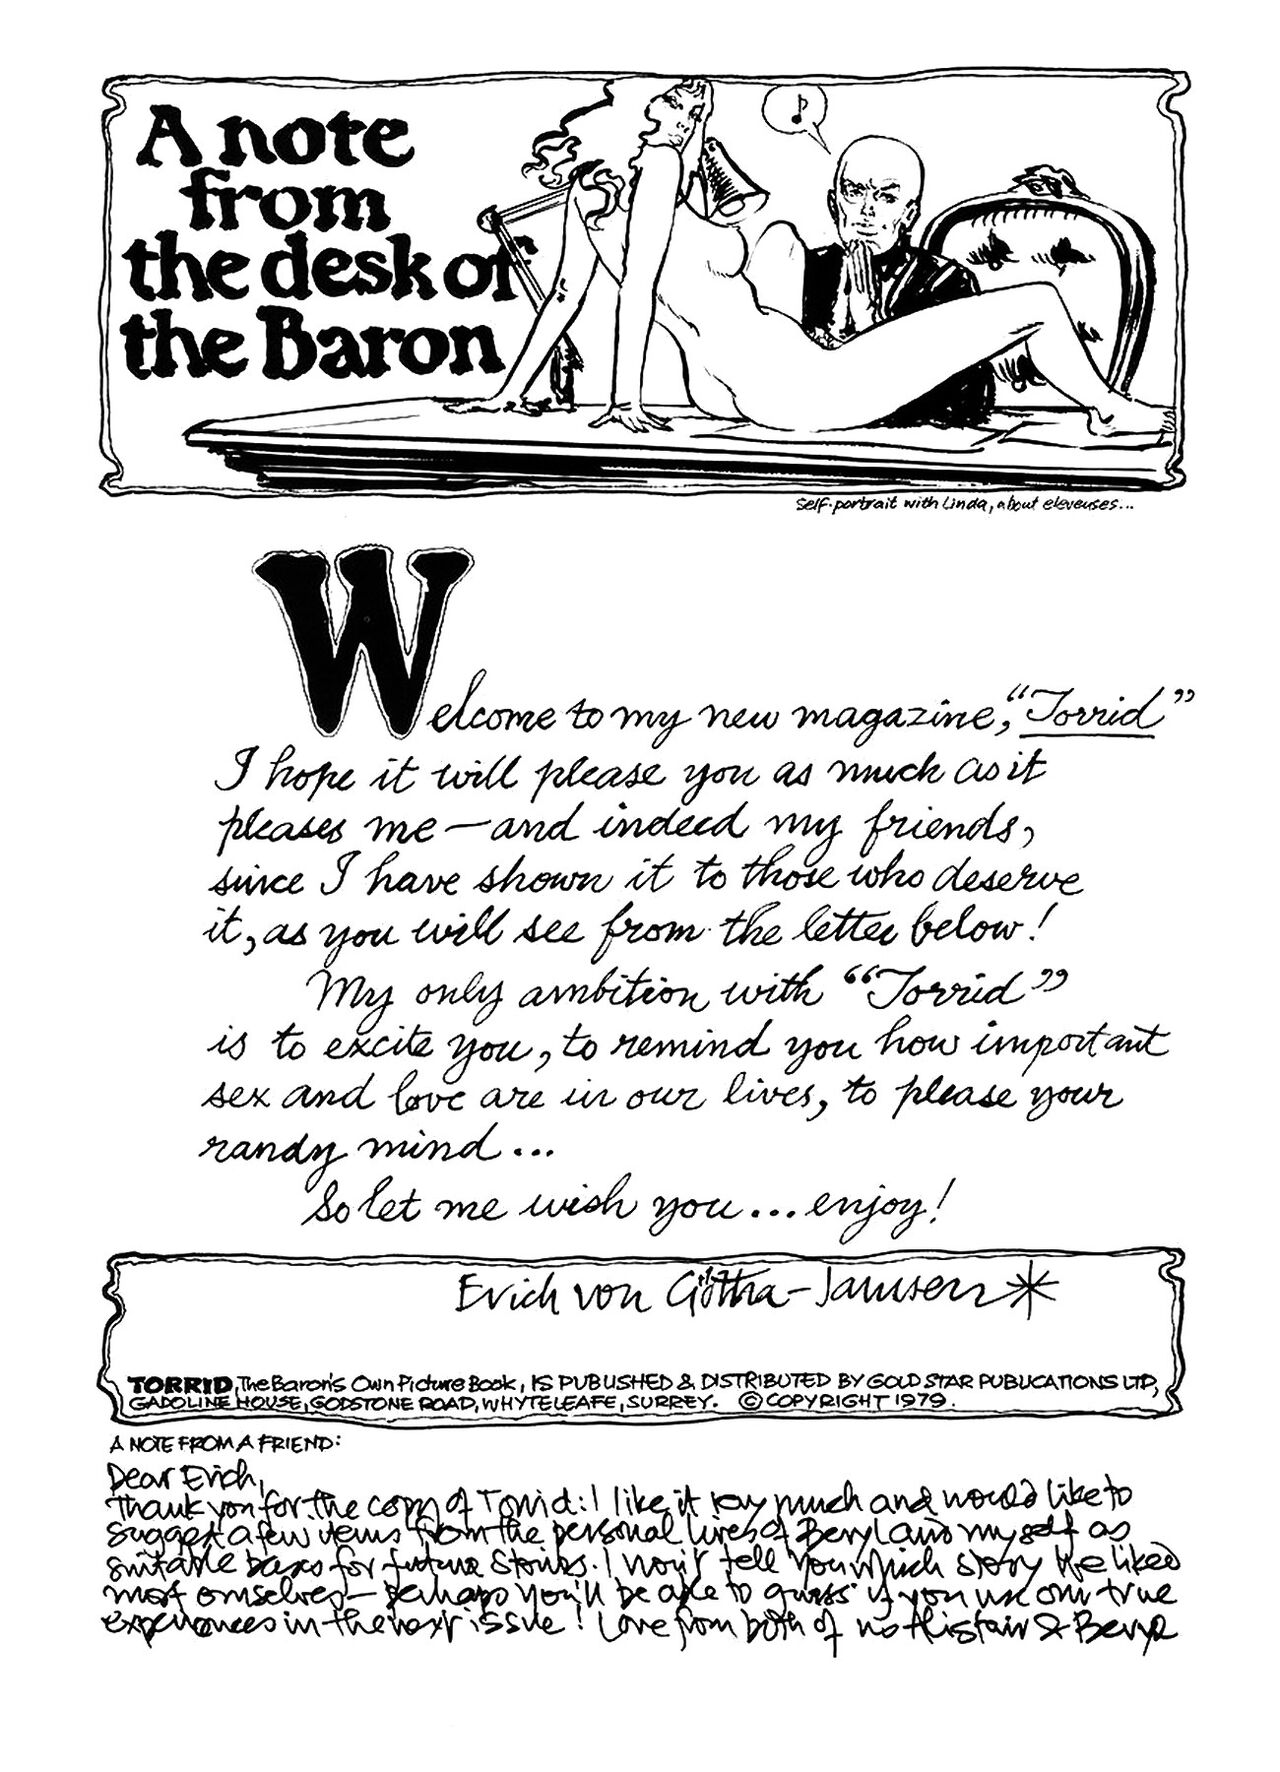 A note
from
the desk of
the Baron
Self-portrait with Linda, about elevenses...
Welcome to my new magazine, "Torrid"
I hope it will please you as much as it
pleases me — and indeed my friends,
since I have shown it to those who deserve
it, as you will see from the letter below!
My only ambition with "Torrid"
is to excite you, to remind you how important
sex and love are in our lives, to please your
randy mind...
So let me wish you... enjoy!
Erich von Götha-Jamsen*
TORRID, The Baron's Own Picture Book, IS PUBLISHED & DISTRIBUTED BY GOLD STAR PUBLICATIONS LTD,
GADOLINE HOUSE, GODSTONE ROAD, WHYTELEAFE, SURREY. © COPYRIGHT 1979.
A NOTE FROM A FRIEND:
Dear Erich,
Thank you for the copy of Torrid: I like it very much and would like to
suggest a few items from the personal lives of Beryl and myself as
suitable bases for future stories. I won't tell you which story we liked
most ourselves — perhaps you'll be able to guess if you use our true
experiences in the next issue! Love from both of us Alistair & Beryl